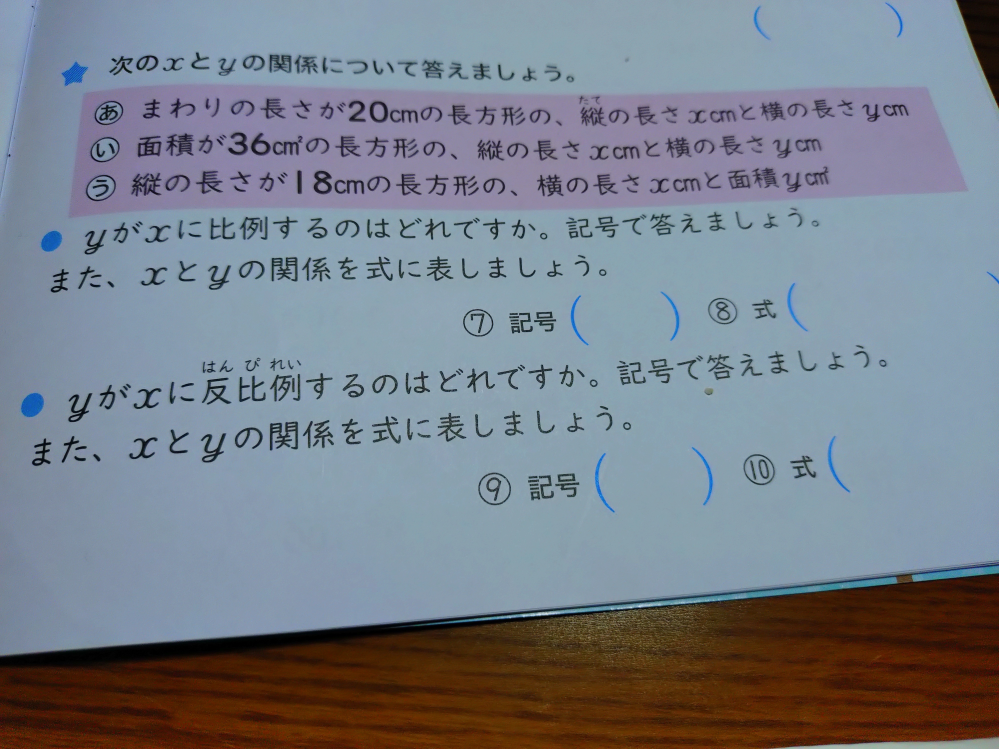 ( )
次のxとyの関係について答えましょう。
あ まわりの長さが20cmの長方形の、縦の長さxcmと横の長さycm
たて
い 面積が36cm²の長方形の、縦の長さxcmと横の長さycm
う 縦の長さが18cmの長方形の、横の長さxcmと面積ycm²
yがxに比例するのはどれですか。記号で答えましょう。
また、xとyの関係を式に表しましょう。
⑦ 記号( ) ⑧ 式(
はんぴれい
yがxに反比例するのはどれですか。記号で答えましょう。
また、xとyの関係を式に表しましょう。
⑨ 記号( ) ⑩ 式(